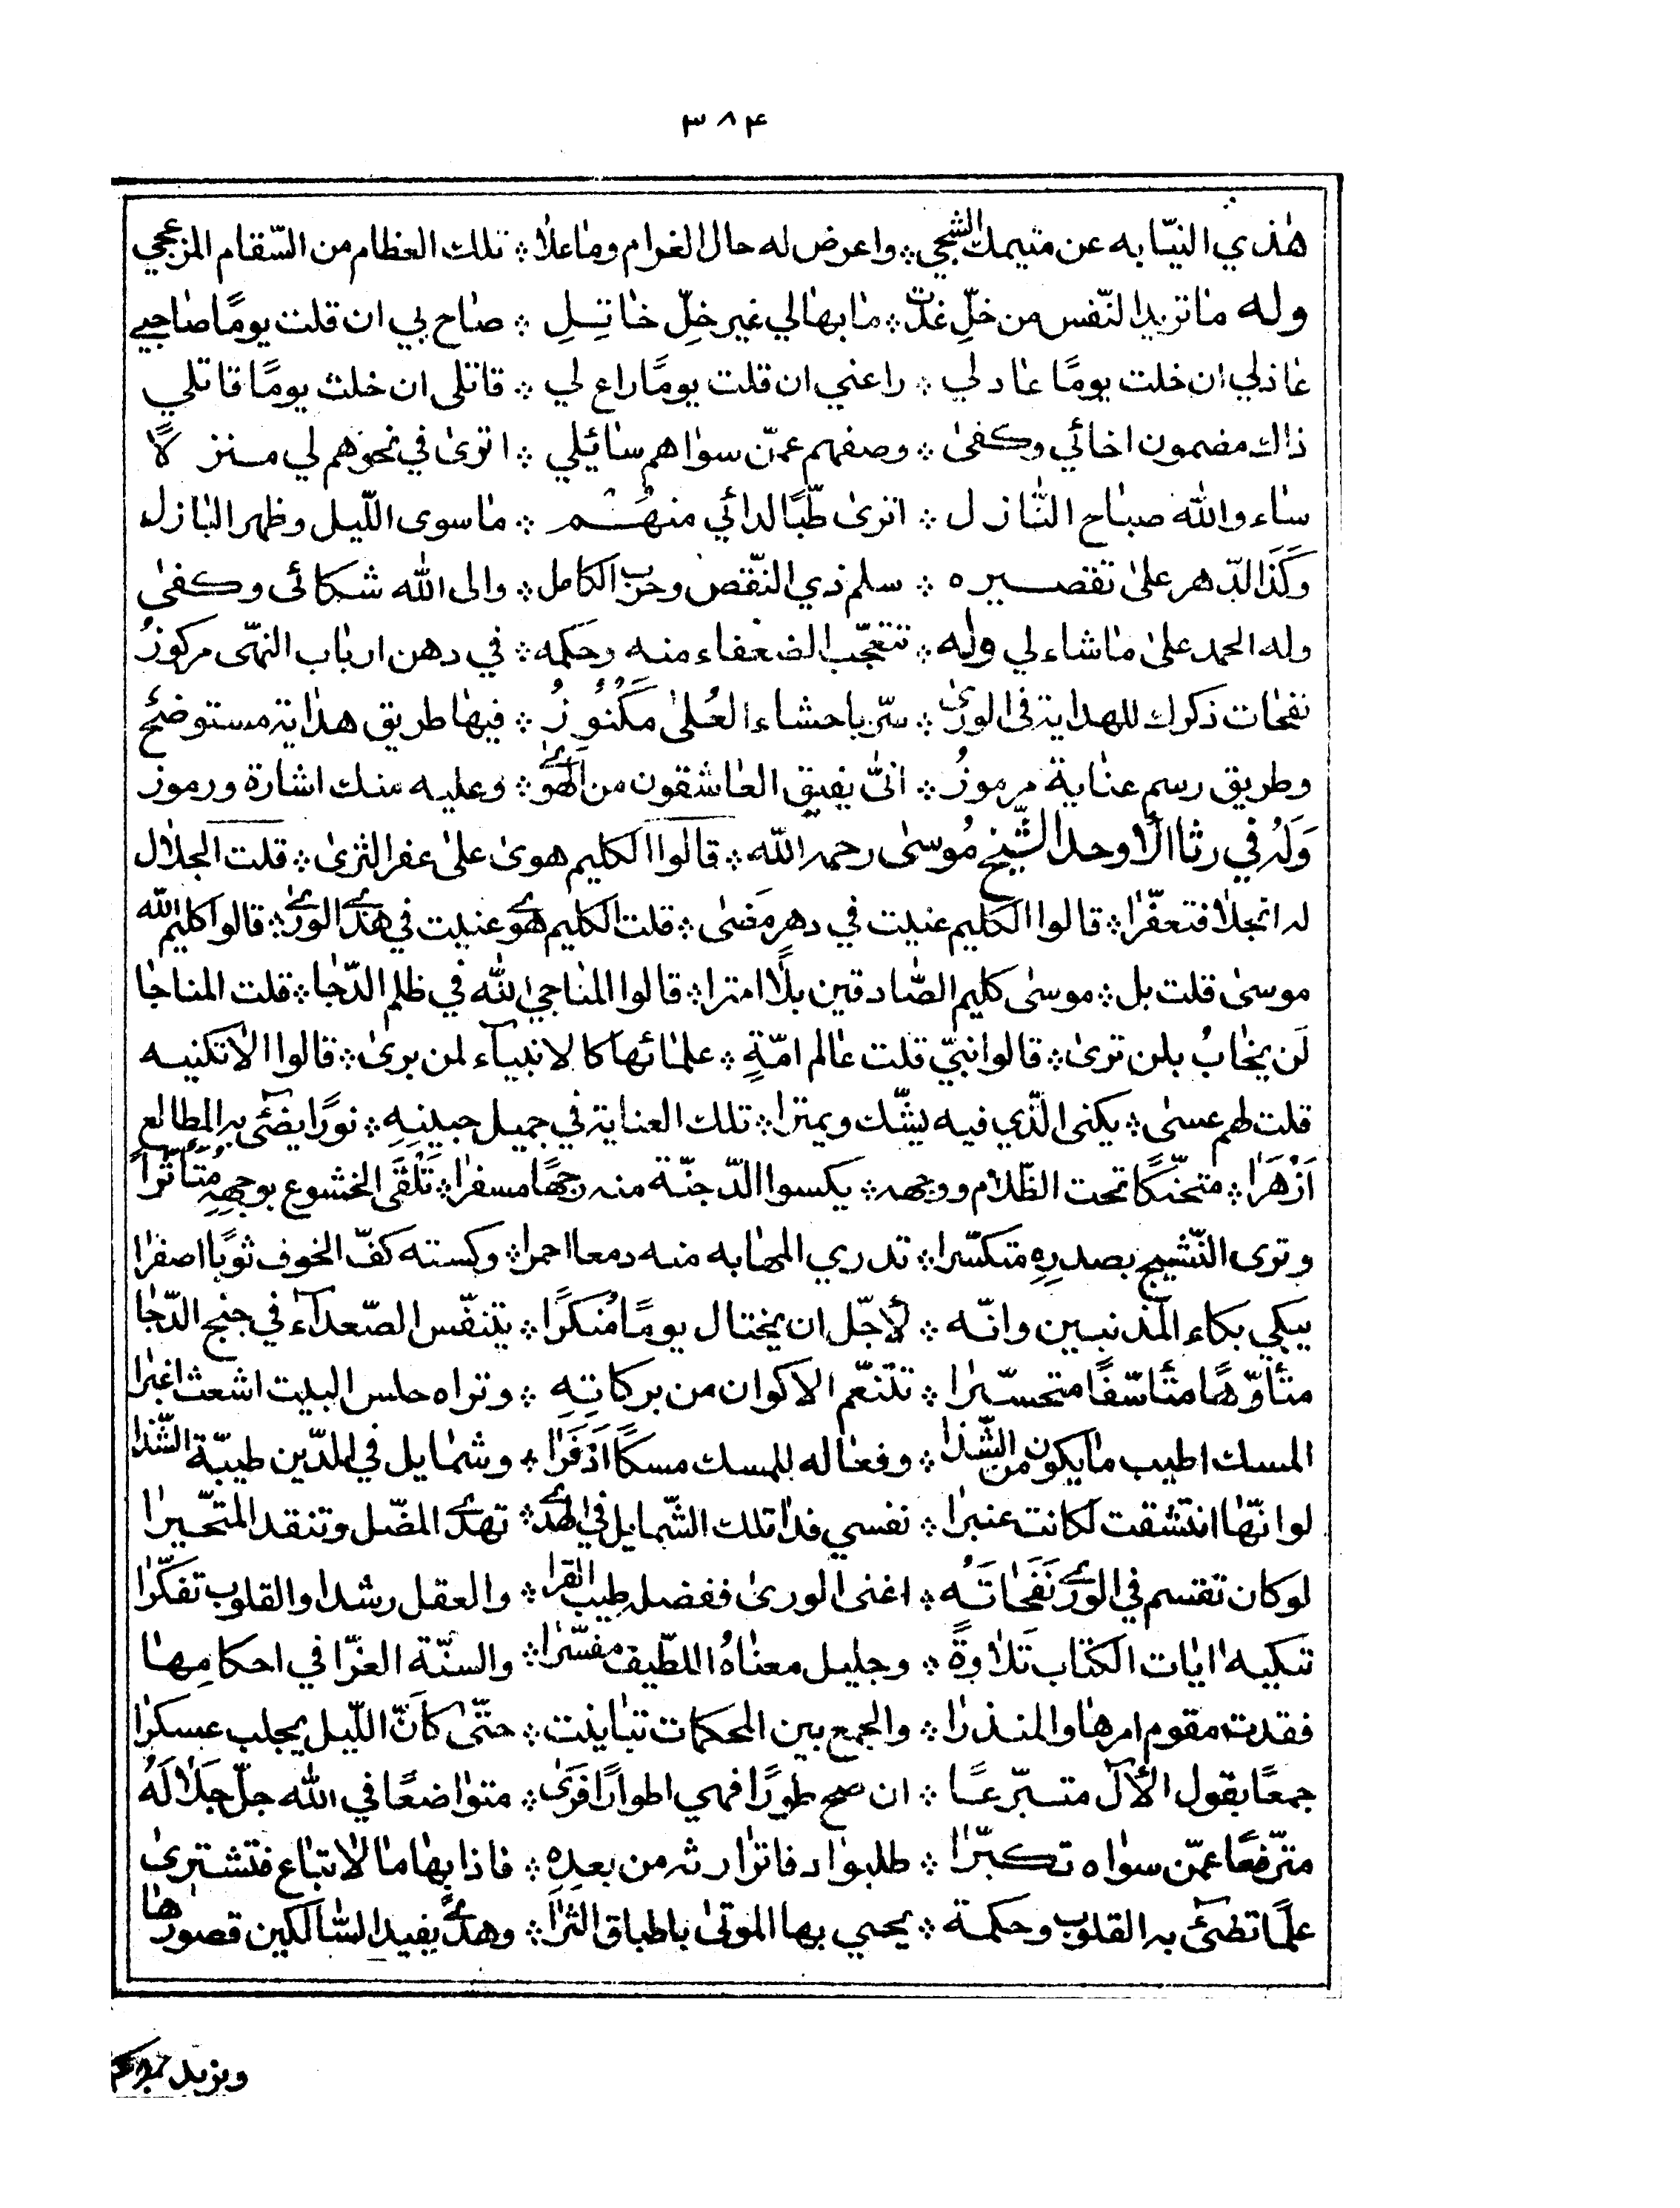 ٣٨٤
هٰذي النيّابه عن متيمك الشجي ؞ واعرض له حال الغرام وما علا ؞ تلك العظام من السّقام المزعجي
وله ما تريد النّفس من خلّ غدت ؞ ما بها لي غير خلّ خاتِلِ ؞ صاح بي ان قلت يومًا صاحبي
عاذلي ان خلت يومًا عادلي ؞ راعني ان قلت يومًا راع لي ؞ قاتلي ان خلت يومًا قاتلي
ذاك مضمون اخائي وكفىٰ ؞ وصفهم عمّن سواهم سائيلي ؞ اترىٰ في نحوهم لي منزلًا
ساء والله صباح النّازل ؞ اترىٰ طّبًا لدائي منهُم ؞ ما سوى اللّيل وظهر البازل
وَكَذَا الدّهر علىٰ تقصيره ؞ سلم ذي النّقص وحرب الكامل ؞ والى الله شكائى وكفىٰ
وله الحمد علىٰ ما شاء لي وله ؞ تتعجّب الضعفاء منه وحكمه ؞ في دهن ارباب النهّى مركوزُ
نفحات ذكرك للهداية فى الورىٰ ؞ سّر باحشاء العُلىٰ مَكْنُوُزُ ؞ فيها طريق هداية مستوضح
وطريق رسم عناية مرموزُ ؞ انىّٰ يفيق العاشقون من الهوى ؞ وعليه منك اشارة ورموز
وَلَهُ في رثا الأوحد الشّيخ مُوسىٰ رحمه الله ؞ قالوا الكليم هوىٰ علىٰ عفر الثرىٰ ؞ قلت الجلال
له انجلا فتعفّرا ؞ قالوا الكليم عنيت في دهر مَضىٰ ؞ قلت الكليم هو عنيت في هدى الورى ؞ قالوا كليم الله
موسىٰ قلت بل ؞ موسىٰ كليم الصّادقين بلا امترا ؞ قالوا المناجي الله في ظلم الدّجا ؞ قلت المناجا
لَن يخابُ بلن ترىٰ ؞ قالوا نبيّ قلت عالم امّةٍ ؞ علمائها كالانبيآء لمن برىٰ ؞ قالوا الاتكنيه
قلت لهم عسىٰ ؞ يكنى الّذي فيه يشّك ويمترا ؞ تلك العناية في جميل جبينِهِ ؞ نورًا يضئى به المطالع
اَزْهَرَا ؞ متحنّكًا تحت الظّلام ووجهه ؞ يكسوا الدّجنّة منه وجهًا مسفرا ؞ تَلْقَى الخشوع بوجهِهِ مُتَأثّرًا
وترى النّشيج بصدرِهِ متكسّرا ؞ تدري المهابه منه دمعا احمرا ؞ وكسته كفّ الخوف ثوبًا اصفرا
يبكي بكاء المذنبين وانّه ؞ لأجّل ان يختال يومًا مُنكرًا ؞ يتنفّس الصّعدآء في جنح الدّجا
متأوّهًا متأسّفًا متحسّرا ؞ تتنعّم الاكوان من بركاتِهِ ؞ وتراه حلس البيت اشعث اغبرا
المسك اطيب ما يكون من الشّذا ؞ وفعاله للمسك مسكًا اَذْفَرَا ؞ وشمايل في الدّين طيبّة الشّذا
لو انّها انتشقت لكانت عنبرا ؞ نفسي فدا تلك الشّمايل في الهدى ؞ تهدى المضّل وتنقد المتحّيرا
لو كان تقتسم في الورى نَفَحَاتَهُ ؞ اغنى الورىٰ ففضله طيب القرا ؞ والعقل رشدا والقلوب تفكّرا
تبكيه ايات الكتاب تَلاوةً ؞ وجليل معناهُ اللطّيف مفسّرا ؞ والسنّة الغرّا في احكامِها
فقدت مقوم امرها والمنذرا ؞ والجمع بين المحكمات تباينت ؞ حتّىٰ كانّ اللّيل يجلب عسكرا
جمعًا بقول الألّ متبرّعًا ؞ ان صح طورًا فهي اطوارًا فرَىٰ ؞ متواضعًا في الله جلّ جَلالَهُ
مترّفعًا عمّن سواه تكبّرا ؞ طلبوا دفاترا رثه من بعدِهِ ؞ فاذا بها ما لاتباع فتشترىٰ
علمًا تضئ به القلوب وحكمة ؞ يحيي بها الموتىٰ باطباق الثرا ؞ وهدىً يفيد السّالكين قصورها
ويزيد